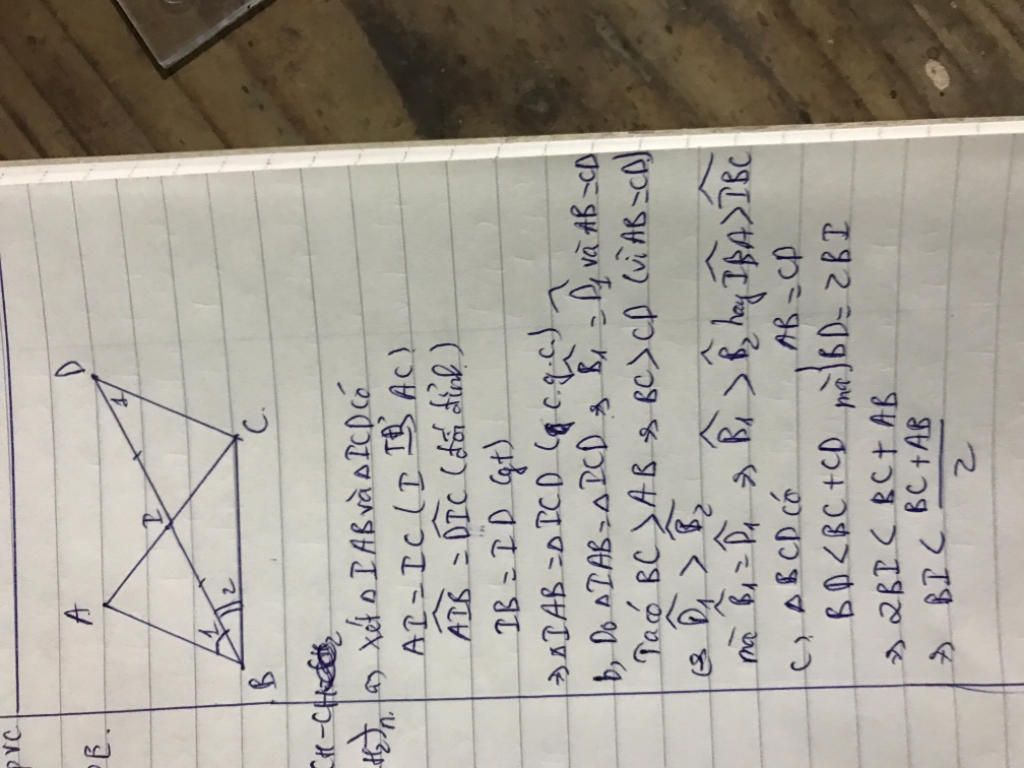 A
D
I
1
1
2
B
C.
CH-CH
a) Xét Δ IAB và Δ ICD có
AI = IC (I AC)
AIB = DIC (đối đỉnh)
IB = ID (gt)
=> Δ IAB = Δ ICD (c.g.c)
b, Do Δ IAB = Δ ICD => B1 = D1 và AB = CD
Ta có BC > AB => BC > CD (vì AB = CD)
D1 > B2
mà B1 = D1 => B1 > B2 hay IBA > IBC
c, Δ BCD có AB = CD
BD < BC + CD mà } BD = 2BI
=> 2BI < BC + AB
=> BI < BC + AB / 2